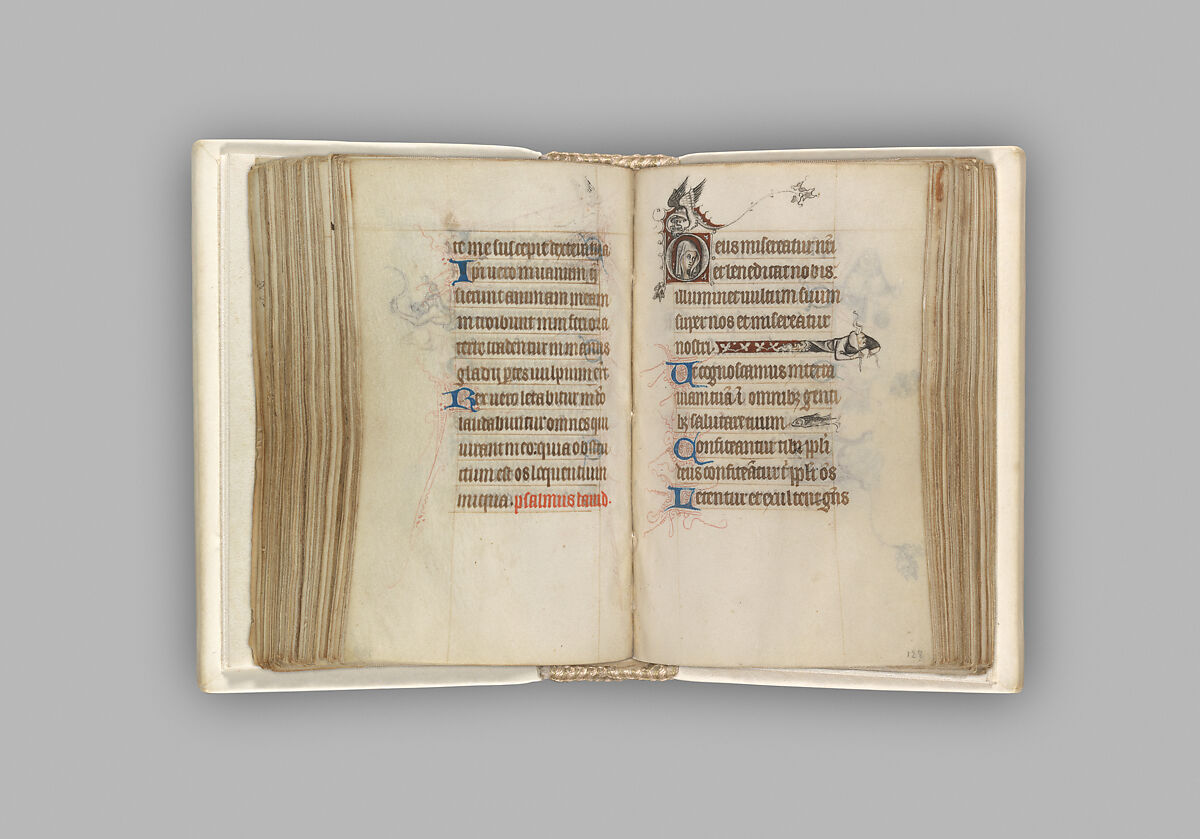 te me suscepit dextera tua
Ipsi vero in vanum q̄
sierunt animam meam
introibunt in inferiora
terre tradentur in manus
gladii ptes vulpium erūt
Rex vero letabitur in deo
laudabuntur omnes qui
iurant in eo: quia obstru
ctum est os loquentium
iniqua. psalmus david.
Deus misereatur nr̄i
et benedicat nobis.
illuminet vultum suum
super nos et misereatur
nostri.
Ut cognoscamus in terra
viam tuā ī omnibꝫ genti
bꝫ salutare tuum
Confiteantur tibꝫ ppl̄i
deus confiteātur t̄ ppl̄i ōs
Letentur et exultent gētes
123